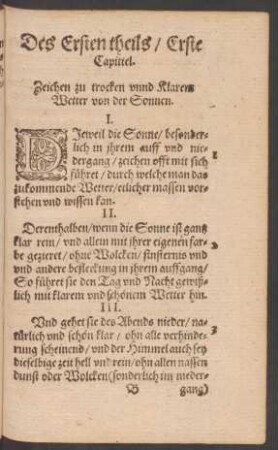 Des Ersten theils / Erste
Capittel.
Zeichen zu trocken vnnd Klarem
Wetter von der Sonnen.
I.
DIeweil die Sonne / besonder-
lich in jhrem auff vnd nie-
dergang / zeichen offt mit sich
führet / durch welche man das
zukommende Wetter / etlicher massen vor-
stehen vnd wissen kan.
II.
Derenthalben / wenn die Sonne ist gantz
klar rein / vnd allein mit jhrer eigenen far-
be gezieret / ohne Wolcken / finsternis vnd
vnd andere befleckung in jhrem auffgang /
So führet sie den Tag vnd Nacht gewiß-
lich mit klarem vnd schönem Wetter hin.
III.
Vnd gehet sie des Abends nieder / na-
türlich vnd schön klar / ohn alle verhinde-
rung scheinend / vnd der Himmel auch sey
dieselbige zeit hell vnd rein / ohn allen nassen
dunst oder Wolcken (sonderlich im nieder-
B gang)